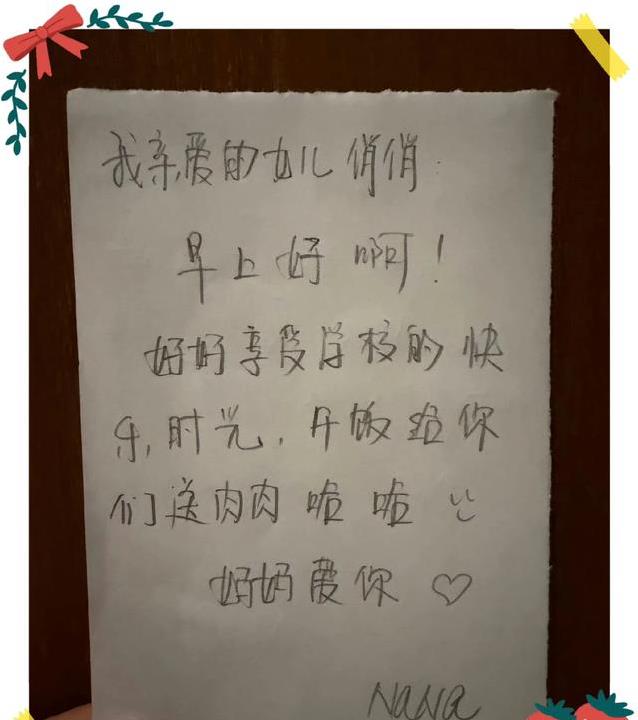 我亲爱的女儿俏俏:
早上好啊!
好好享受学校的快
乐时光,开饭给你
们送肉肉哈哈
妈妈爱你
NaNa